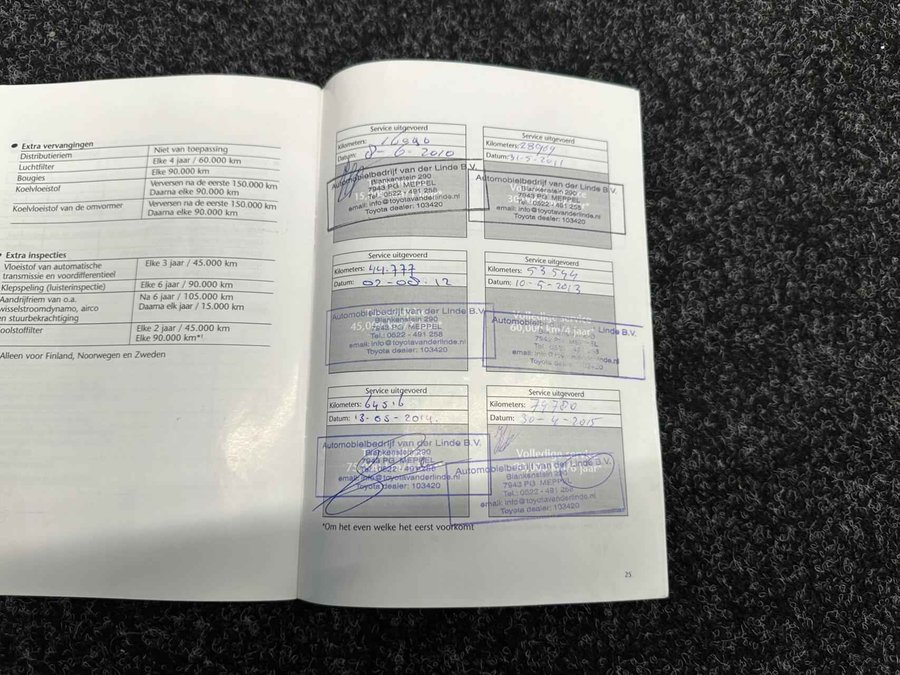 • Extra vervangingen
Distributieriem Niet van toepassing
Luchtfilter Elke 4 jaar / 60.000 km
Bougies Elke 90.000 km
Koelvloeistof Verversen na de eerste 150.000 km
Daarna elke 90.000 km
Koelvloeistof van de omvormer Verversen na de eerste 150.000 km
Daarna elke 90.000 km
Extra inspecties
Vloeistof van automatische Elke 3 jaar / 45.000 km
transmissie en voordifferentieel
Klepspeling (luisterinspectie) Elke 6 jaar / 90.000 km
Aandrijfriem van o.a. Na 6 jaar / 105.000 km
wisselstroomdynamo, airco Daarna elk jaar / 15.000 km
en stuurbekrachtiging
oolstoffilter Elke 2 jaar / 45.000 km
Elke 90.000 km*¹
Alleen voor Finland, Noorwegen en Zweden
Service uitgevoerd
Kilometers:
Datum: 8-6-2010
Automobielbedrijf van der Linde B.V.
Blankenstein 290
7943 PG MEPPEL
Tel.: 0522 - 491 258
email: info@toyotavanderlinde.nl
Toyota dealer: 103420
Service uitgevoerd
Kilometers: 28909
Datum: 31-5-2011
Automobielbedrijf van der Linde B.V.
Blankenstein 290
7943 PG MEPPEL
Tel.: 0522 - 491 258
email: info@toyotavanderlinde.nl
Toyota dealer: 103420
Service uitgevoerd
Kilometers: 44.777
Datum: 02-08-12
Automobielbedrijf van der Linde B.V.
Blankenstein 290
7943 PG MEPPEL
Tel.: 0522 - 491 258
email: info@toyotavanderlinde.nl
Toyota dealer: 103420
Service uitgevoerd
Kilometers: 53544
Datum: 10-5-2013
60.000 km/4 jaar*
Automobielbe Linde B.V.
Blankenstein
7943 PG MEPPEL
Toyota dealer: 103420
Service uitgevoerd
Kilometers: 64516
Datum: 13-05-2014.
Automobielbedrijf van der Linde B.V.
Blankenstein 290
7943 PG MEPPEL
Tel.: 0522 - 491 258
email: info@toyotavanderlinde.nl
Toyota dealer: 103420
Service uitgevoerd
Kilometers: 79780
Datum: 30-4-2015
Volledige
Automobielbedrijf van der Linde B.V.
Blankenstein 290
7943 PG MEPPEL
Tel.: 0522 - 491 258
email: info@toyotavanderlinde.nl
Toyota dealer: 103420
*Om het even welke het eerst voorkomt
25